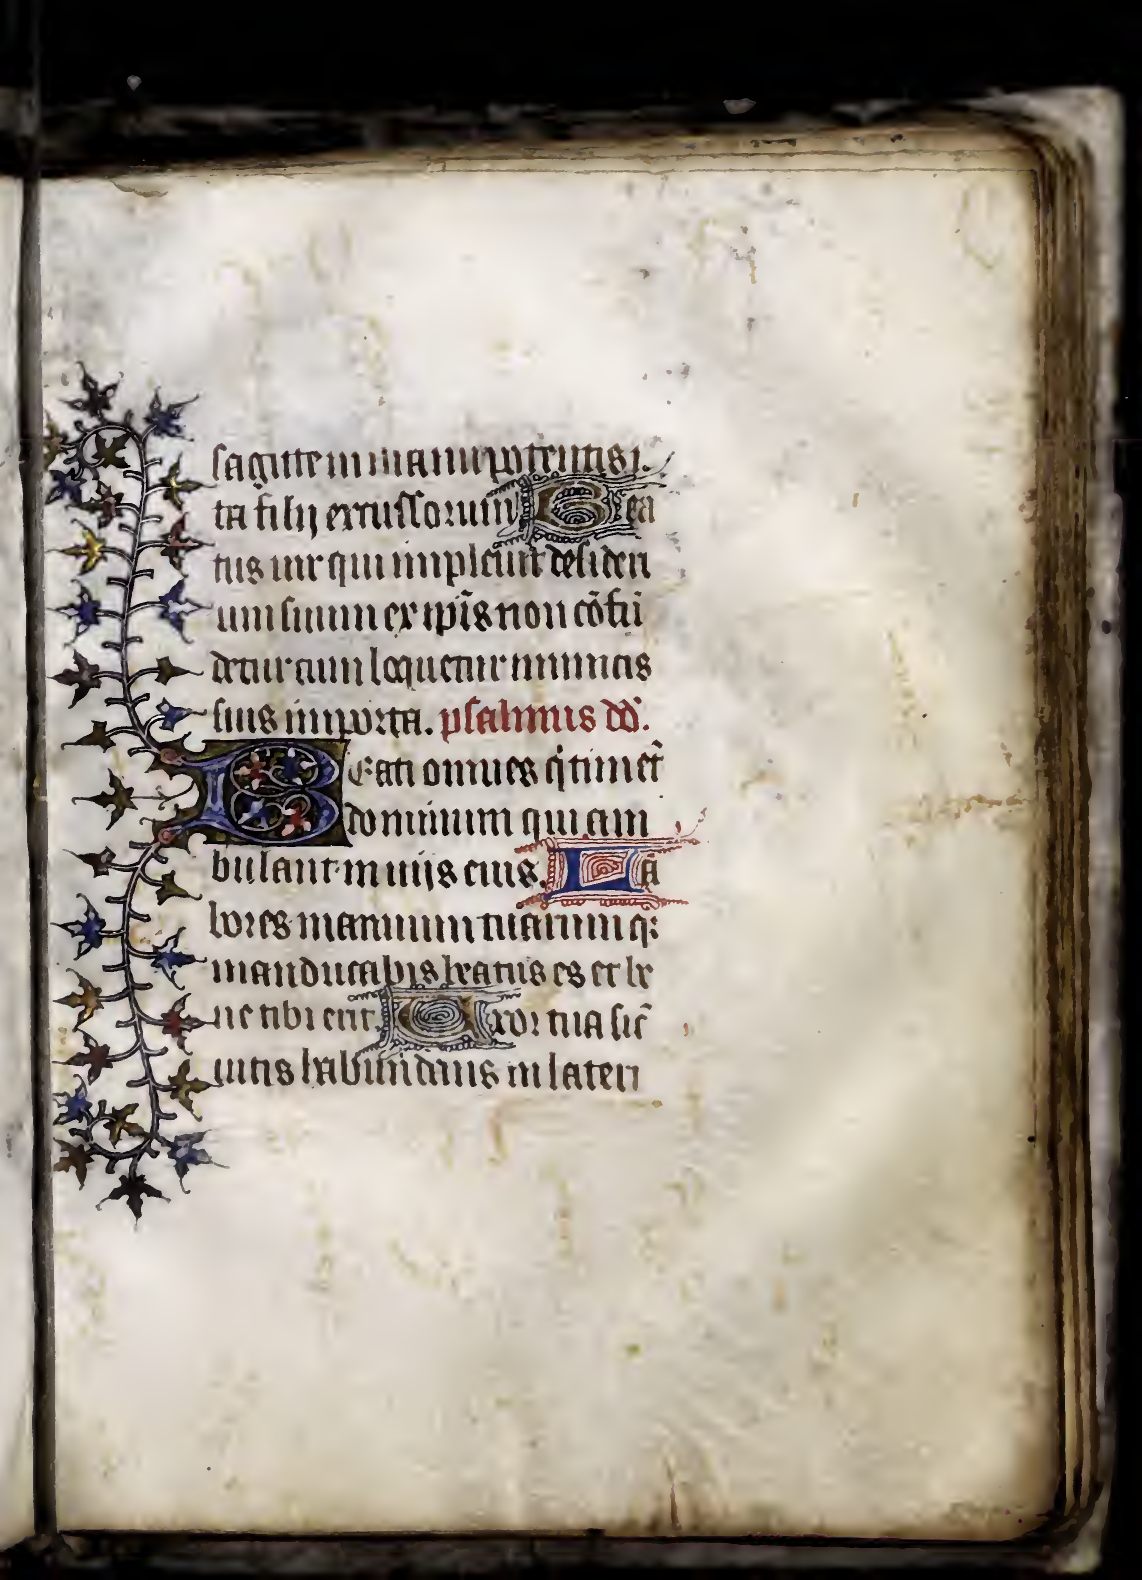 sagitte in manu potentis i
ta filij excussorum Bea
tus uir qui impleuit desideri
um suum ex ip̄is non cōfū
detur cum loquetur inimicis
suis in porta. psalmus dd̄.
Beati omnes q̇ timēt
dominum qui am
bulant in uijs eius. La
bores manuum tuarum q:
manducabis beatus es et be
ne tibi erit. Uxor tua sic̄
uitis habundans in lateri